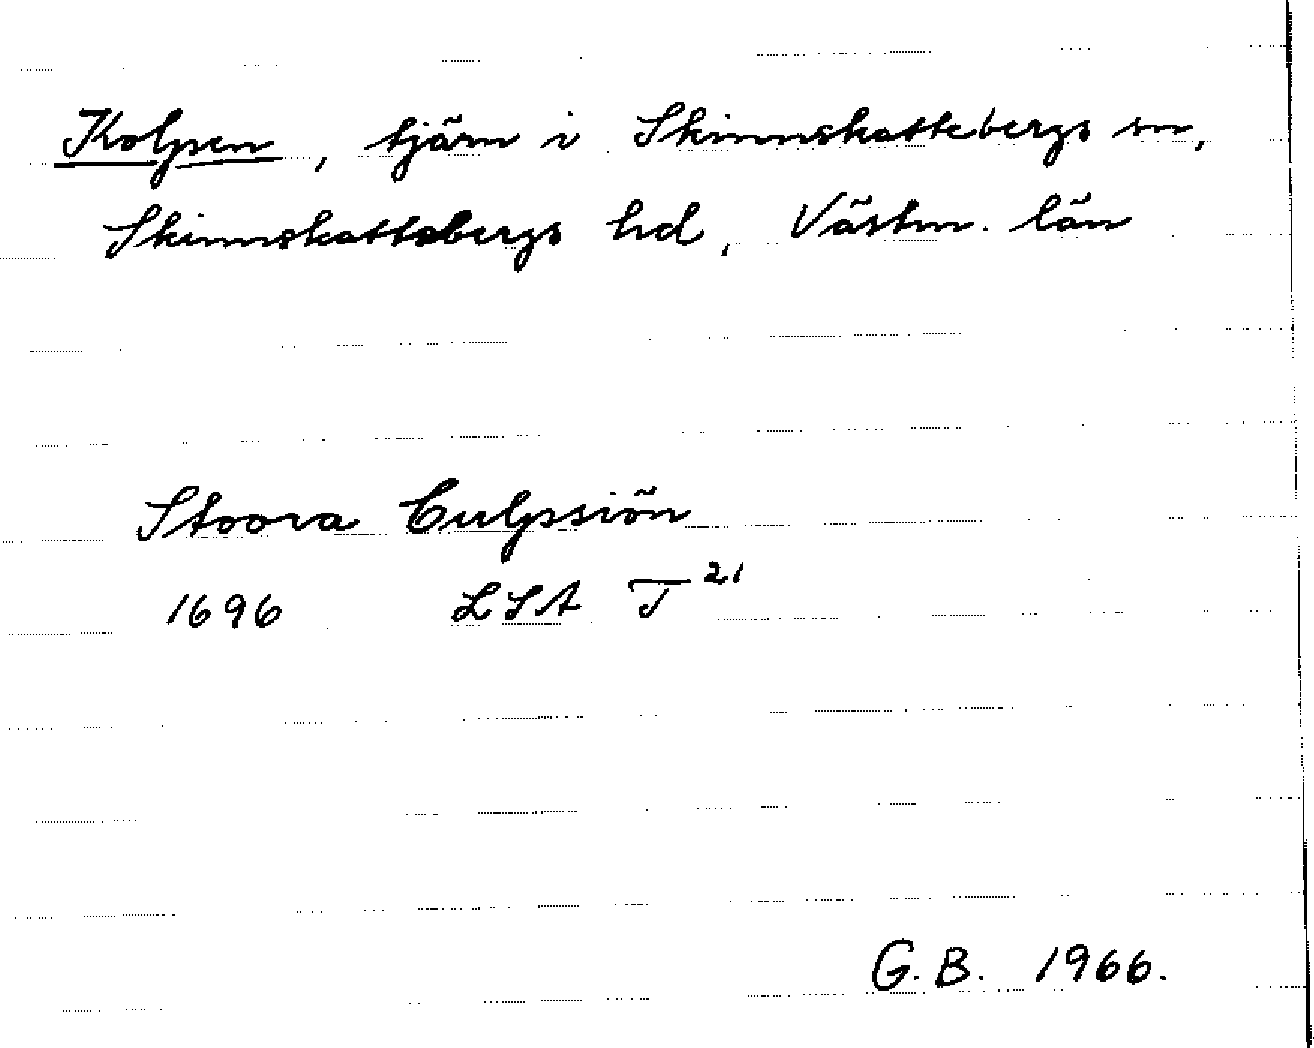 Kolpen, tjärn i Skinnskattebergs sn,
Skinnskattebergs hd, Västm. län
Stoora Culpsiön
1696 LSA T²¹
G.B. 1966.